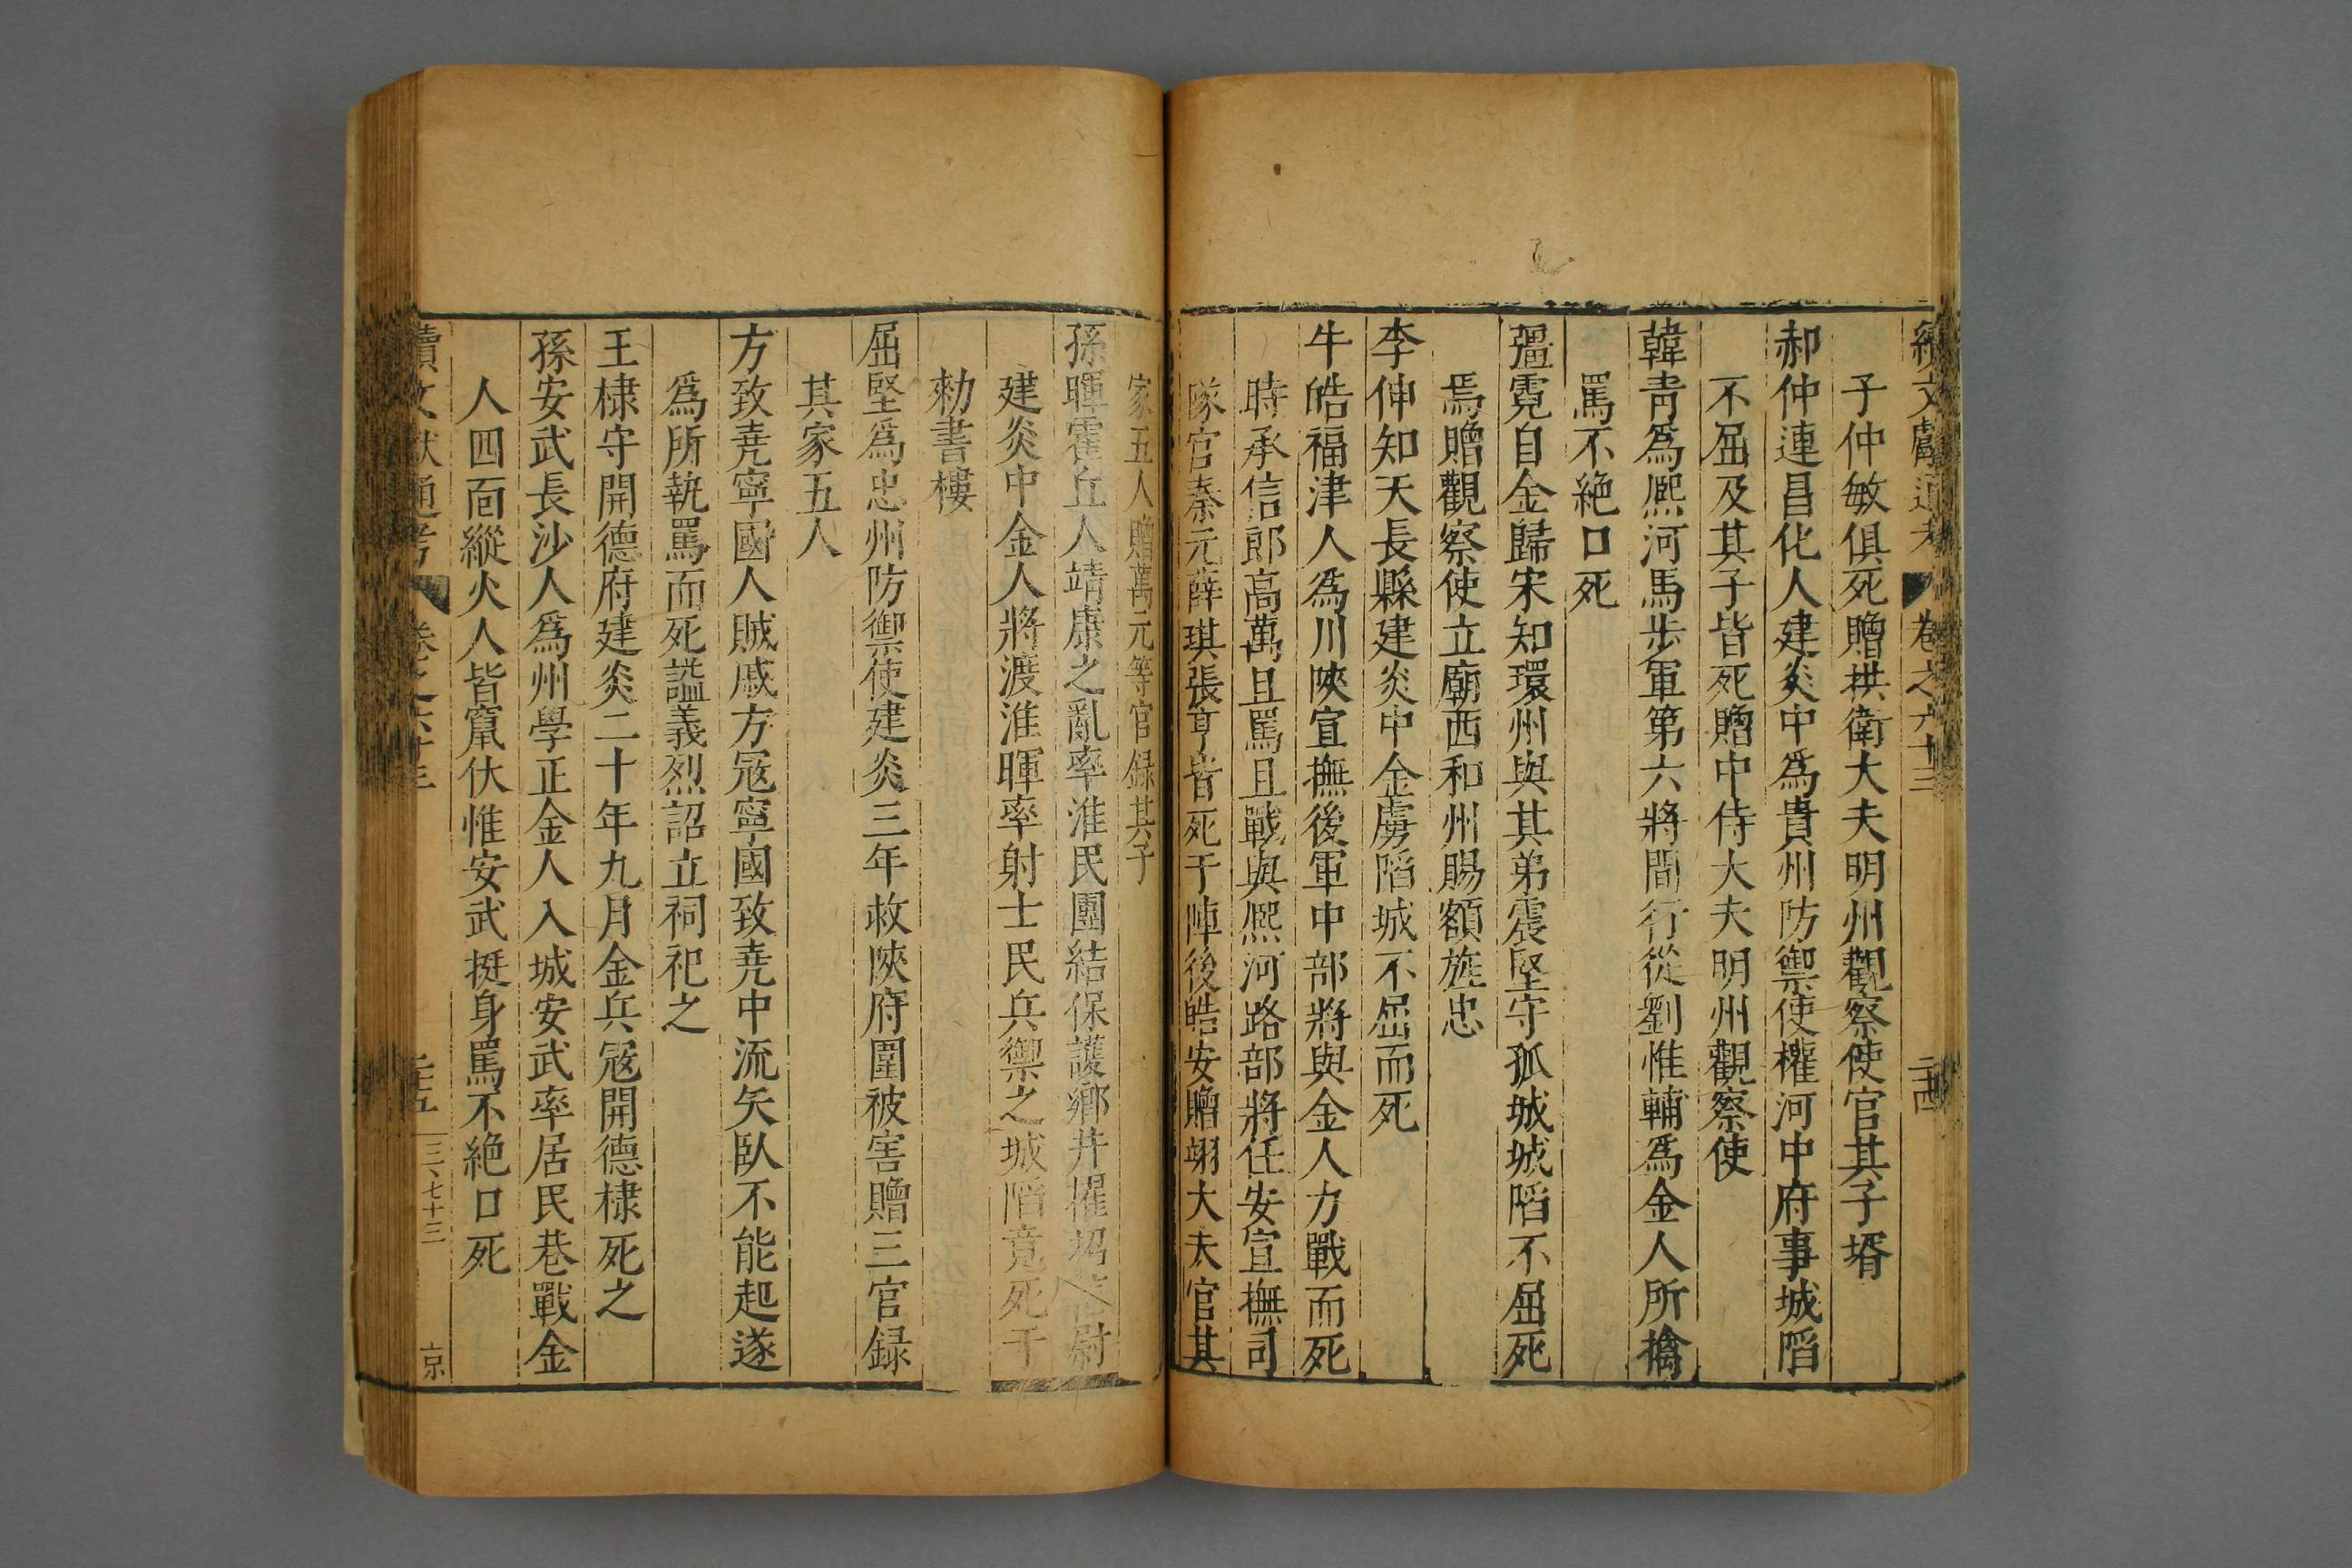 續文獻通考 卷之六十三 二十四
子仲敏俱死贈拱衛大夫明州觀察使官其子壻
郝仲連昌化人建炎中爲貴州防禦使權河中府事城陷
不屈及其子皆死贈中侍大夫明州觀察使
韓靑爲熈河馬步軍第六將間行從劉惟輔爲金人所擒
罵不絶口死
彊霓自金歸宋知環州與其弟震堅守孤城城陷不屈死
焉贈觀察使立廟西和州賜額旌忠
李伸知天長縣建炎中金虜陷城不屈而死
牛皓福津人爲川陝宣撫後軍中部將與金人力戰而死
時承信郎高萬且罵且戰與熈河路部將任安宣撫司
隊官秦元薛琪張亨皆死于陣後皓安贈翊大夫官其
家五人贈萬元等官録其子
孫暉霍丘人靖康之亂率淮民團結保護鄉井擢招 尉
建炎中金人將渡淮暉率射士民兵禦之城陷竟死于
勑書樓
屈堅爲忠州防禦使建炎三年救陝府圍被害贈三官録
其家五人
方致堯寧國人賊戚方寇寧國致堯中流矢臥不能起遂
爲所執罵而死謚義烈詔立祠祀之
王棣守開德府建炎二十年九月金兵寇開德棣死之
孫安武長沙人爲州學正金人入城安武率居民巷戰金
人四面縱火人皆竄伏惟安武挺身罵不絶口死
續文獻通考 卷之六十三 二十五 三、七十三 京